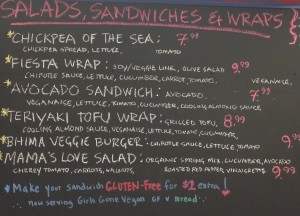 SALADS, SANDWICHES & WRAPS
*CHICKPEA OF THE SEA: 7.99
CHICKPEA SPREAD, LETTUCE, TOMATO
*FIESTA WRAP: SOY/VEGGIE LINK, OLIVE SALAD 9.99
CHIPOTLE SAUCE, LETTUCE, CUCUMBER, CARROT, TOMATO,
*AVOCADO SANDWICH: AVOCADO, 7.99
VEGANAISE, LETTUCE, TOMATO, CUCUMBER, COOLING ALMOND SAUCE
*TERIYAKI TOFU WRAP: GRILLED TOFU, 8.99
COOLING ALMOND SAUCE, VEGANAISE, LETTUCE, TOMATO, CUCUMBER,
*BHIMA VEGGIE BURGER: CHIPOTLE SAUCE, LETTUCE, TOMATO 9.99
*MAMA'S LOVE SALAD: ORGANIC SPRING MIX, CUCUMBER, AVOCADO
CHERRY TOMATO, CARROTS, WALNUTS, ROASTED RED PEPPER VINAIGRETTE 9.99
Make your Sandwich GLUTEN-FREE for $2 extra!
now serving Girls Gone Vegan GF V bread